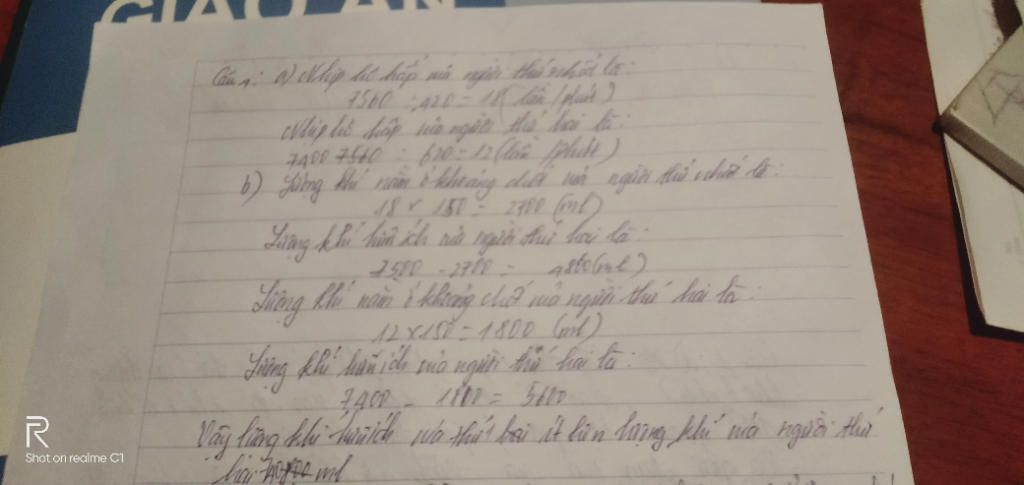 GIÁO ÁN
Câu 1: a) Nhịp hô hấp của người thứ nhất là:
7560 : 420 = 18 (lần/phút)
Nhịp hô hấp của người thứ hai là:
7400 7560 : 620 = 12 (lần/phút)
b) Lượng khí nằm ở khoảng chết của người thứ nhất là:
18 × 150 = 2700 (ml)
Lượng khí hữu ích của người thứ hai là:
7500 - 2700 = 4860 (ml)
Lượng khí nằm ở khoảng chết của người thứ hai là:
12 × 150 = 1800 (ml)
Lượng khí hữu ích của người thứ hai là:
7400 - 1800 = 5600
Vậy lượng khí hữu ích của thứ hai ít hơn lượng khí của người thứ
hai ml
R
Shot on realme C1